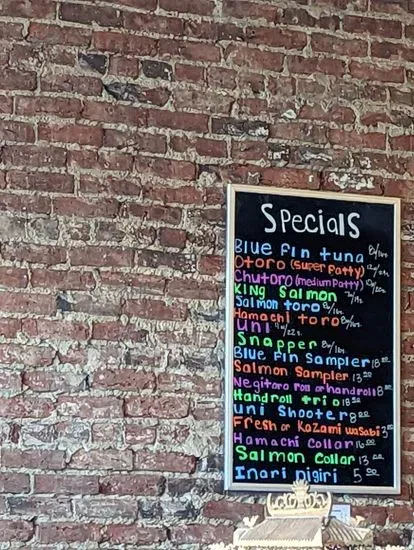 Specials
Blue fin tuna
Otoro (super fatty)
Chutoro (medium fatty)
King Salmon
Salmon toro
Hamachi toro
Uni
Snapper
Blue fin Sampler 18.00
Salmon Sampler 13.50
Negitoro roll or handroll 8.00
Handroll trio 18.50
uni Shooter 8.00
Fresh or Kazami wasabi
Hamachi Collar 16.00
Salmon Collar 13.00
Inari nigiri 5.00